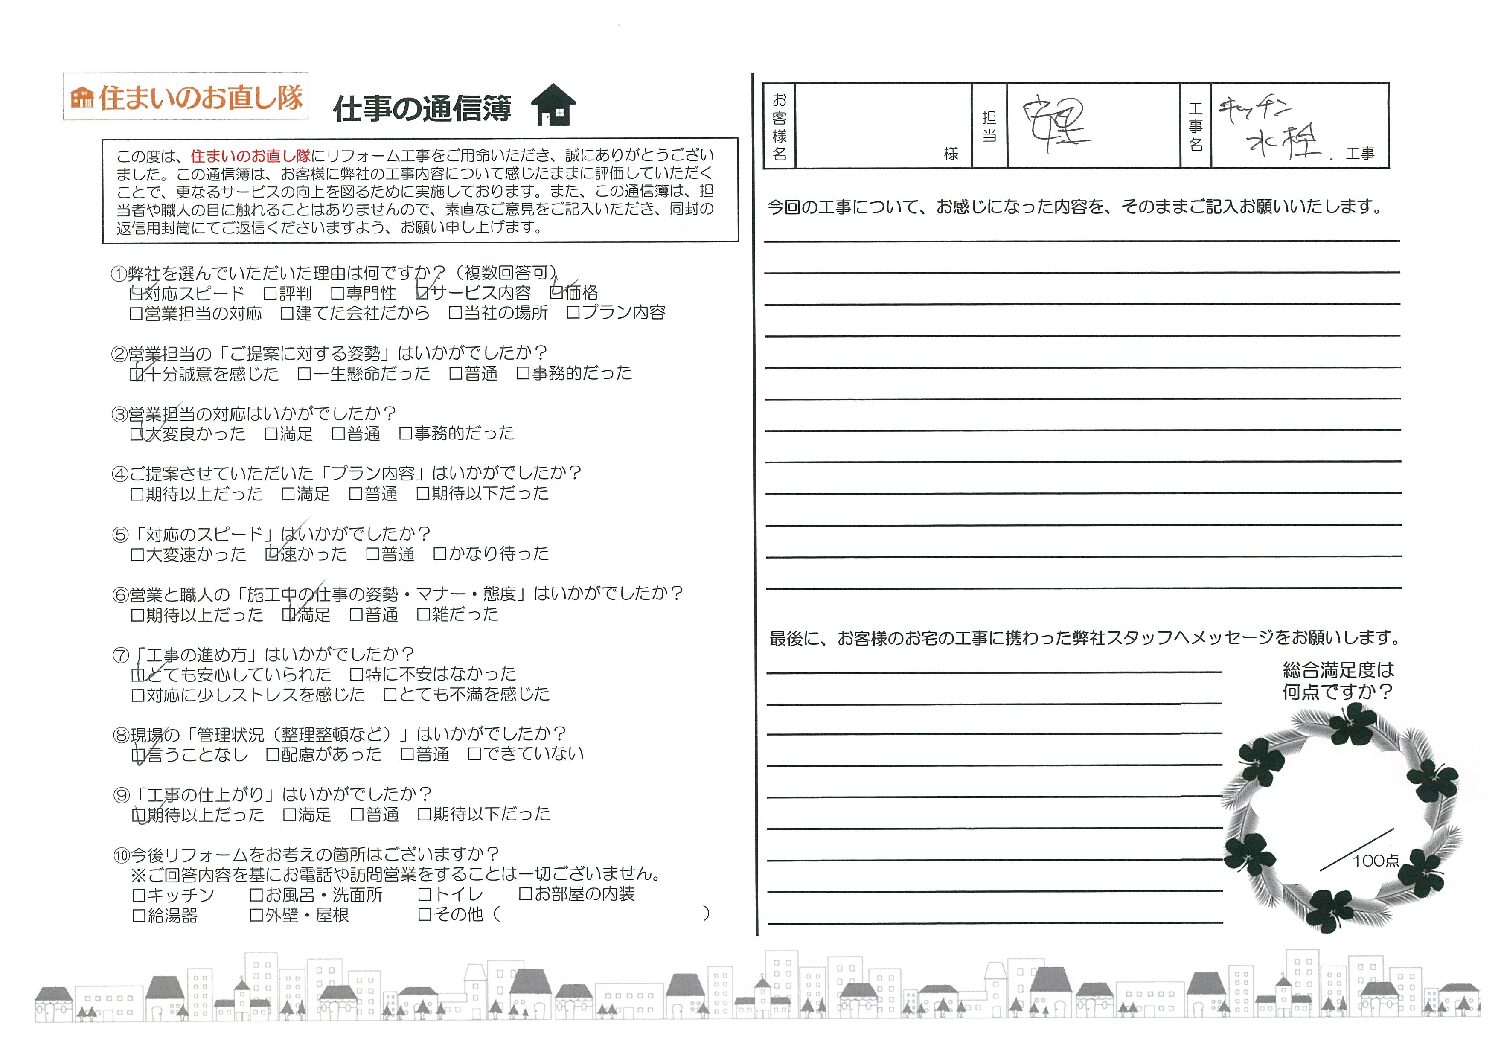 住まいのお直し隊
仕事の通信簿
この度は、住まいのお直し隊にリフォーム工事をご用命いただき、誠にありがとうござい
ました。この通信簿は、お客様に弊社の工事内容について感じたままに評価していただく
ことで、更なるサービスの向上を図るために実施しております。また、この通信簿は、担
当者や職人の目に触れることはありませんので、素直なご意見をご記入いただき、同封の
返信用封筒にてご返信くださいますよう、お願い申し上げます。
①弊社を選んでいただいた理由は何ですか？（複数回答可）
☑対応スピード　□評判　□専門性　☑サービス内容　☑価格
□営業担当の対応　□建てた会社だから　□当社の場所　□プラン内容
②営業担当の「ご提案に対する姿勢」はいかがでしたか？
☑十分誠意を感じた　□一生懸命だった　□普通　□事務的だった
③営業担当の対応はいかがでしたか？
☑大変良かった　□満足　□普通　□事務的だった
④ご提案させていただいた「プラン内容」はいかがでしたか？
□期待以上だった　□満足　□普通　□期待以下だった
⑤「対応のスピード」はいかがでしたか？
□大変速かった　☑速かった　□普通　□かなり待った
⑥営業と職人の「施工中の仕事の姿勢・マナー・態度」はいかがでしたか？
□期待以上だった　☑満足　□普通　□雑だった
⑦「工事の進め方」はいかがでしたか？
☑とても安心していられた　□特に不安はなかった
□対応に少しストレスを感じた　□とても不満を感じた
⑧現場の「管理状況（整理整頓など）」はいかがでしたか？
☑言うことなし　□配慮があった　□普通　□できていない
⑨「工事の仕上がり」はいかがでしたか？
☑期待以上だった　□満足　□普通　□期待以下だった
⑩今後リフォームをお考えの箇所はございますか？
※ご回答内容を基にお電話や訪問営業をすることは一切ございません。
□キッチン　□お風呂・洗面所　□トイレ　□お部屋の内装
□給湯器　□外壁・屋根　□その他（　　　）
お客様名　様　担当　安里　工事名　キッチン
水栓　工事
今回の工事について、お感じになった内容を、そのままご記入お願いいたします。
最後に、お客様のお宅の工事に携わった弊社スタッフへメッセージをお願いします。
総合満足度は
何点ですか？
／100点